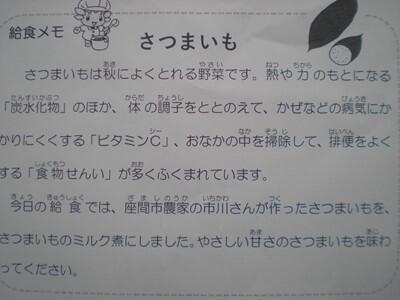 給食メモ
さつまいも
さつまいもは秋によくとれる野菜です。熱や力のもとになる
「炭水化物」のほか、体の調子をととのえて、かぜなどの病気にか
かりにくくする「ビタミンC」、おなかの中を掃除して、排便をよく
する「食物せんい」が多くふくまれています。
今日の給食では、座間市農家の市川さんが作ったさつまいもを、
さつまいものミルク煮にしました。やさしい甘さのさつまいもを味わ
ってください。